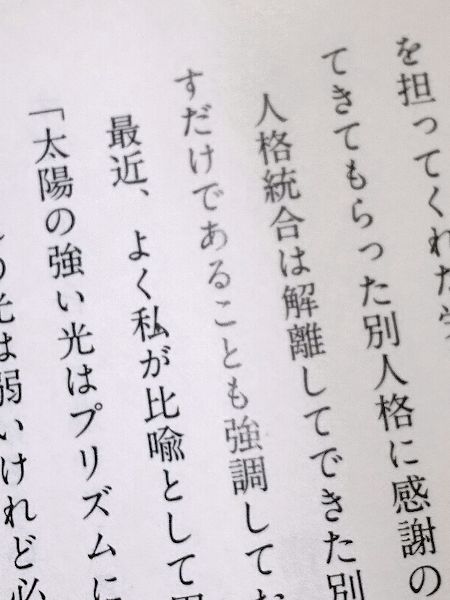 を担ってくれた
てきてもらった別人格に感謝の
人格統合は解離してできた別
すだけであることも強調してお
最近、よく私が比喩として
「太陽の強い光はプリズムに
の光は弱いけれど必